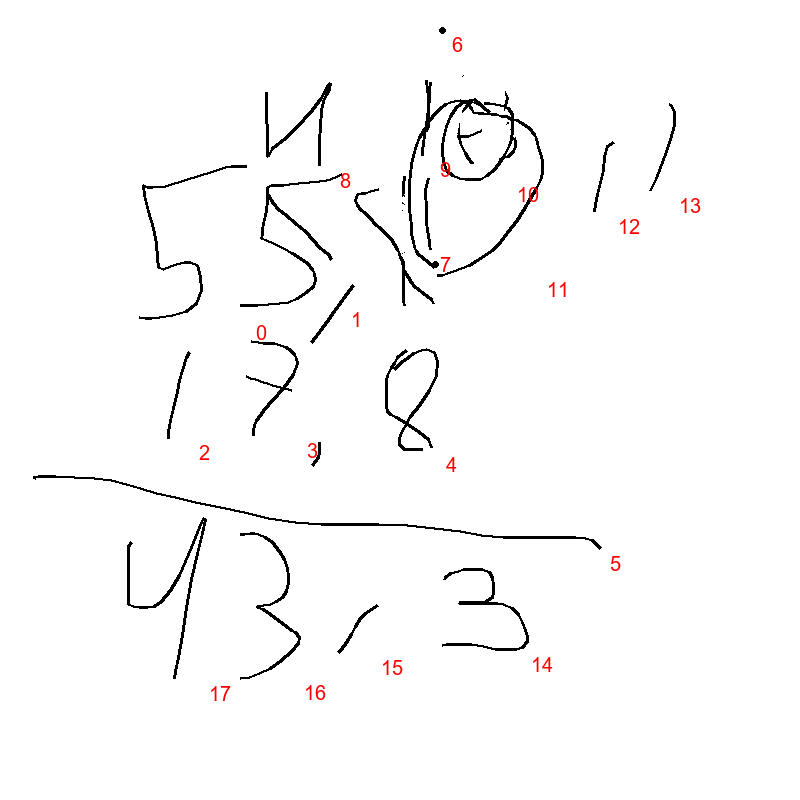 6
4 11
8 9 10 12 13
55 7 11
0 1
17,8
2 3 4
5
43,3
17 16 15 14